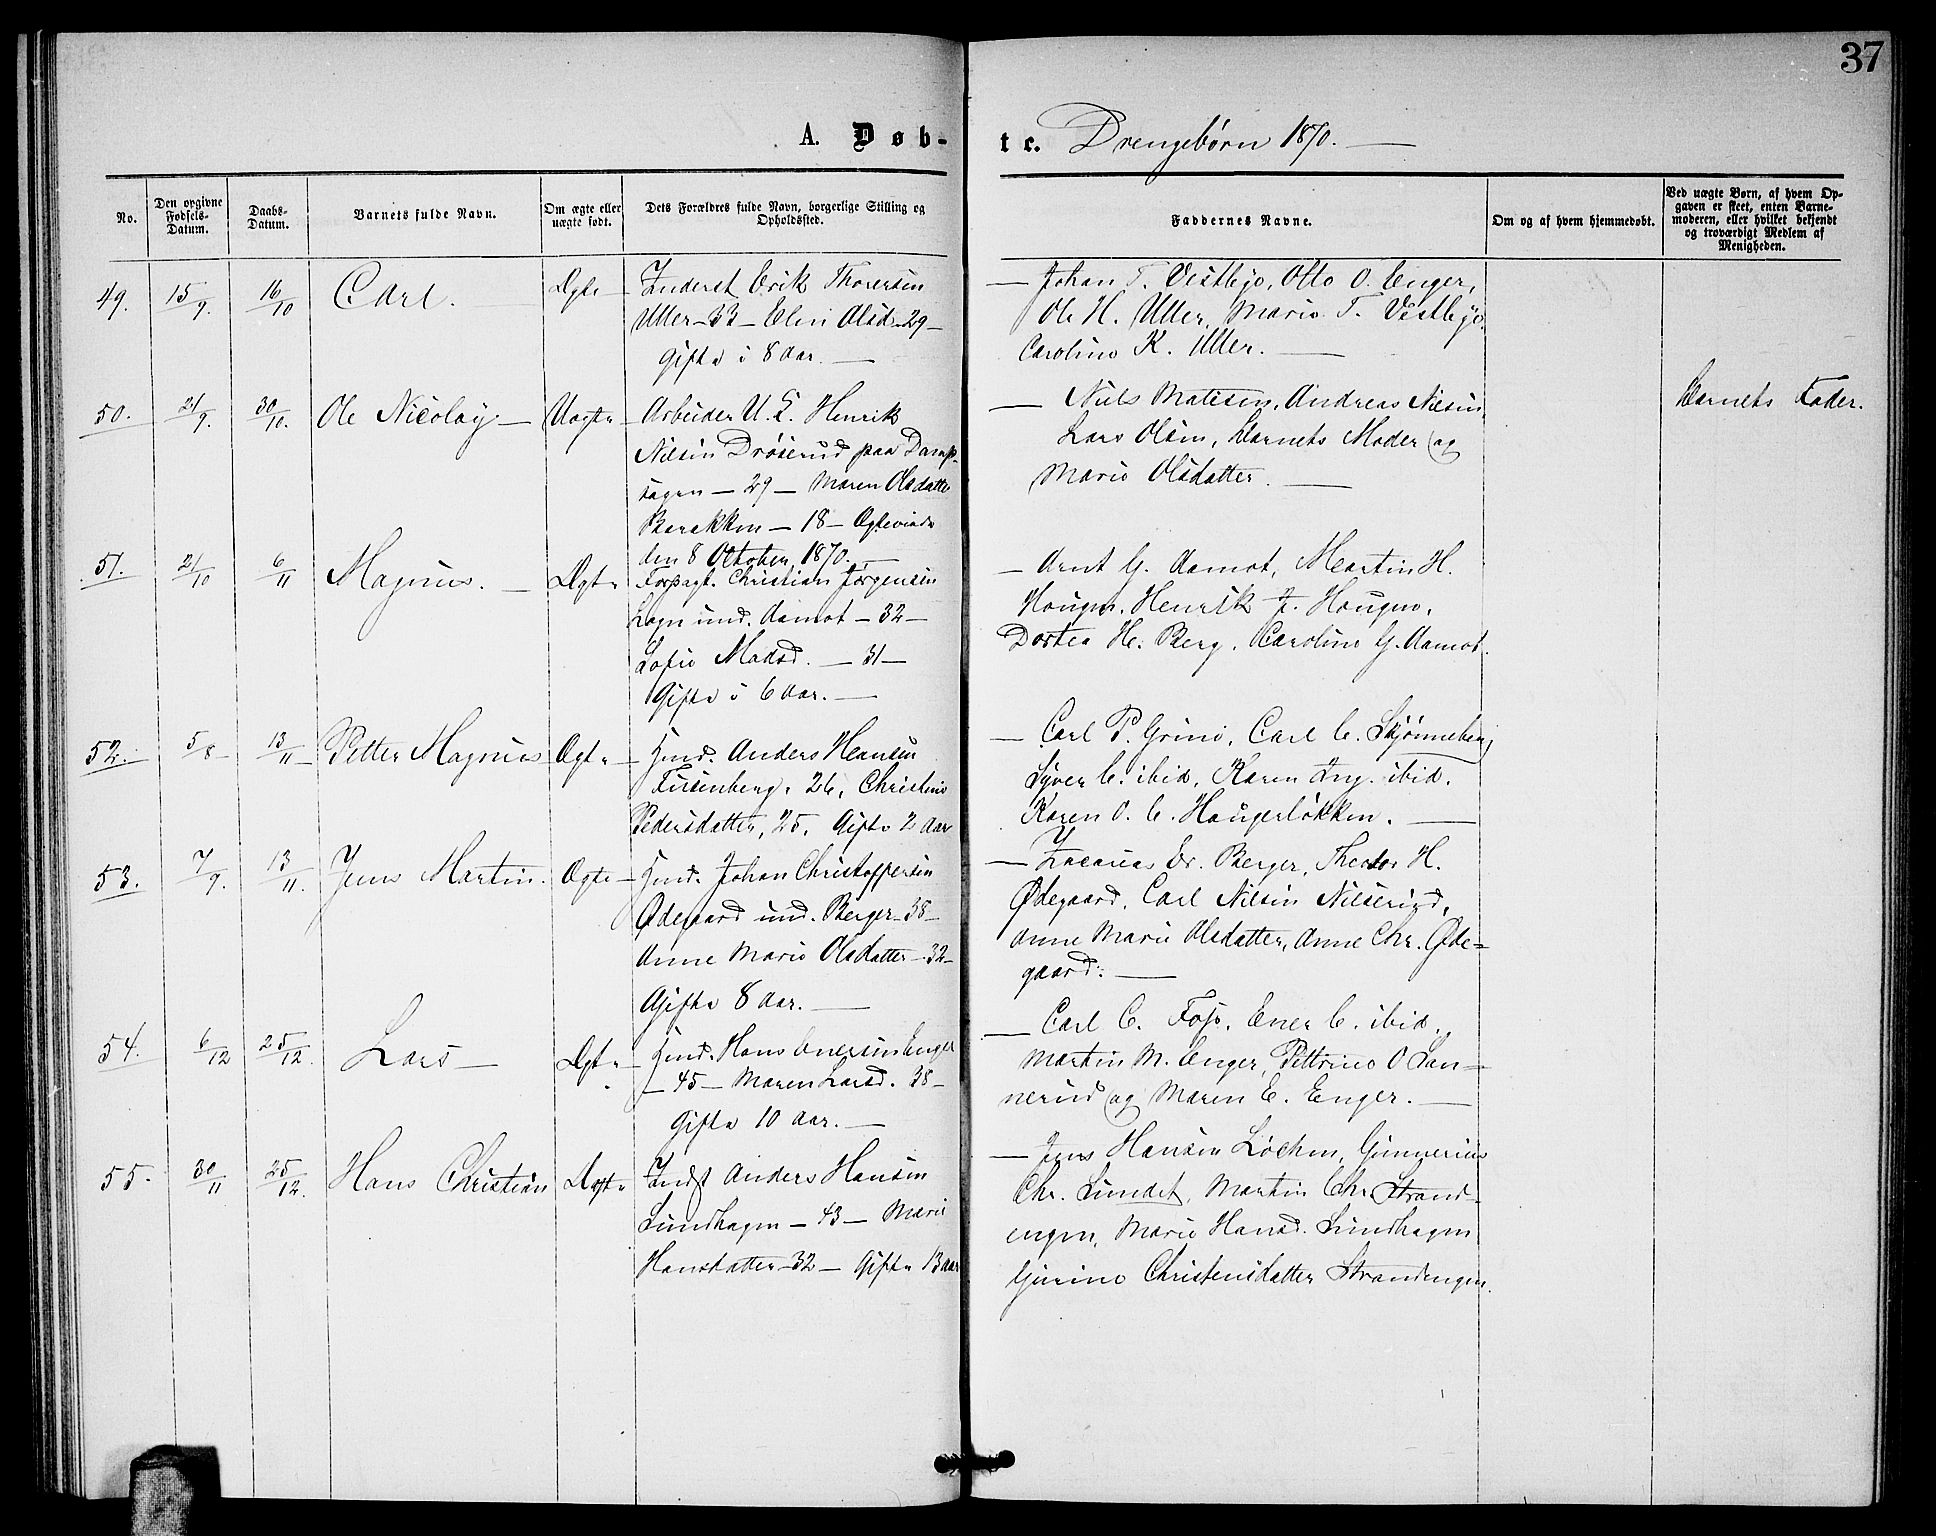 37
A. Døb-
te. Drengebørn 1870.
No.
Den opgivne Fødsels-Datum.
Daabs-Datum.
Barnets fulde Navn.
Om ægte eller uægte født.
Dets Forældres fulde Navn, borgerlige Stilling og Opholdssted.
Faddernes Navne.
Om og af hvem hjemmedøbt.
Ved uægte Børn, af hvem Opgaven er skeet, enten Barnemoderen, eller hvilket bekjendt og troværdigt Medlem af Menigheden.
49. 15/9. 16/10 Carl. Ægte
Inderst Erik Thoresen
Uller – 33 – Elen Olsd. 29 –
gifte i 8 Aar. –
– Johan T. Vestbye, Otto O. Enger,
Ole H. Uller, Marie T. Vestbye,
Caroline K. Uller. –
50. 21/9. 30/10. Ole Nicolay – Uægte
Arbeider U. K. Henrik
Nilsen Drøserud paa Damp-
sagen – 29 – Maren Olsdatter
Barakken – 18 – Ægteviede
den 8 October, 1870. –
– Niels Matesen, Andreas Nilsen,
Lars Olsen, Barnets Moder og
Marie Olsdatter. –
Barnets Fader.
51. 21/10 6/11 Magnus. – Ægte
Forpagt. Christian Jørgensen
Hagen und. Aamot – 32 –
Sofie Madsd. – 31 –
Gifte i 6 Aar. –
– Arnt G. Aamot, Martin H.
Hougen, Henrik J. Hougen,
Dortea H. Berg, Caroline G. Aamot.
52. 5/8 13/11 Petter Magnus Ægte
Hmd. Anders Hansen
Fusenberg, 26, Christine
Pedersdatter, 25, Gifte 2 Aar
– Carl P. Grine, Carl C. Skjønneberg,
Syver C. ibid, Karen Ing. ibid.
Karen O. C. Haugerløkken. –
53. 7/9. 13/11. Jens Martin. Ægte
Hmd. Johan Christoffersen
Ødegaard und. Berger – 38 –
Anne Marie Olsdatter – 32 –
Gifte 8 Aar. –
– Zacarias Er. Berger, Theodor H.
Ødegaard, Carl Nilsen Nilserud,
Anne Marie Olsdatter, Anne Chr. Øde=
gaard. –
54. 6/12 25/12. Lars – Ægte
Hmd. Hans Enersen Enger
– 45 – Maren Larsd. 38 –
Gifte 10 Aar. –
– Carl C. Fojo, Ener C. ibid,
Martin M. Enger, Pettrine O San=
nerud og Maren E. Enger. –
55. 30/11 25/12. Hans Christian Ægte
Indst Anders Hansen
Sundhagen – 43 – Marie
Hansdatter – 32 – Gifte 13 Aar
– Jens Hansen Løchen, Gunnerius
Chr. Sundet, Martin Chr. Strand-
engen, Marie Hansd. Sundhagen
Gurine Christensdatter Strandengen.